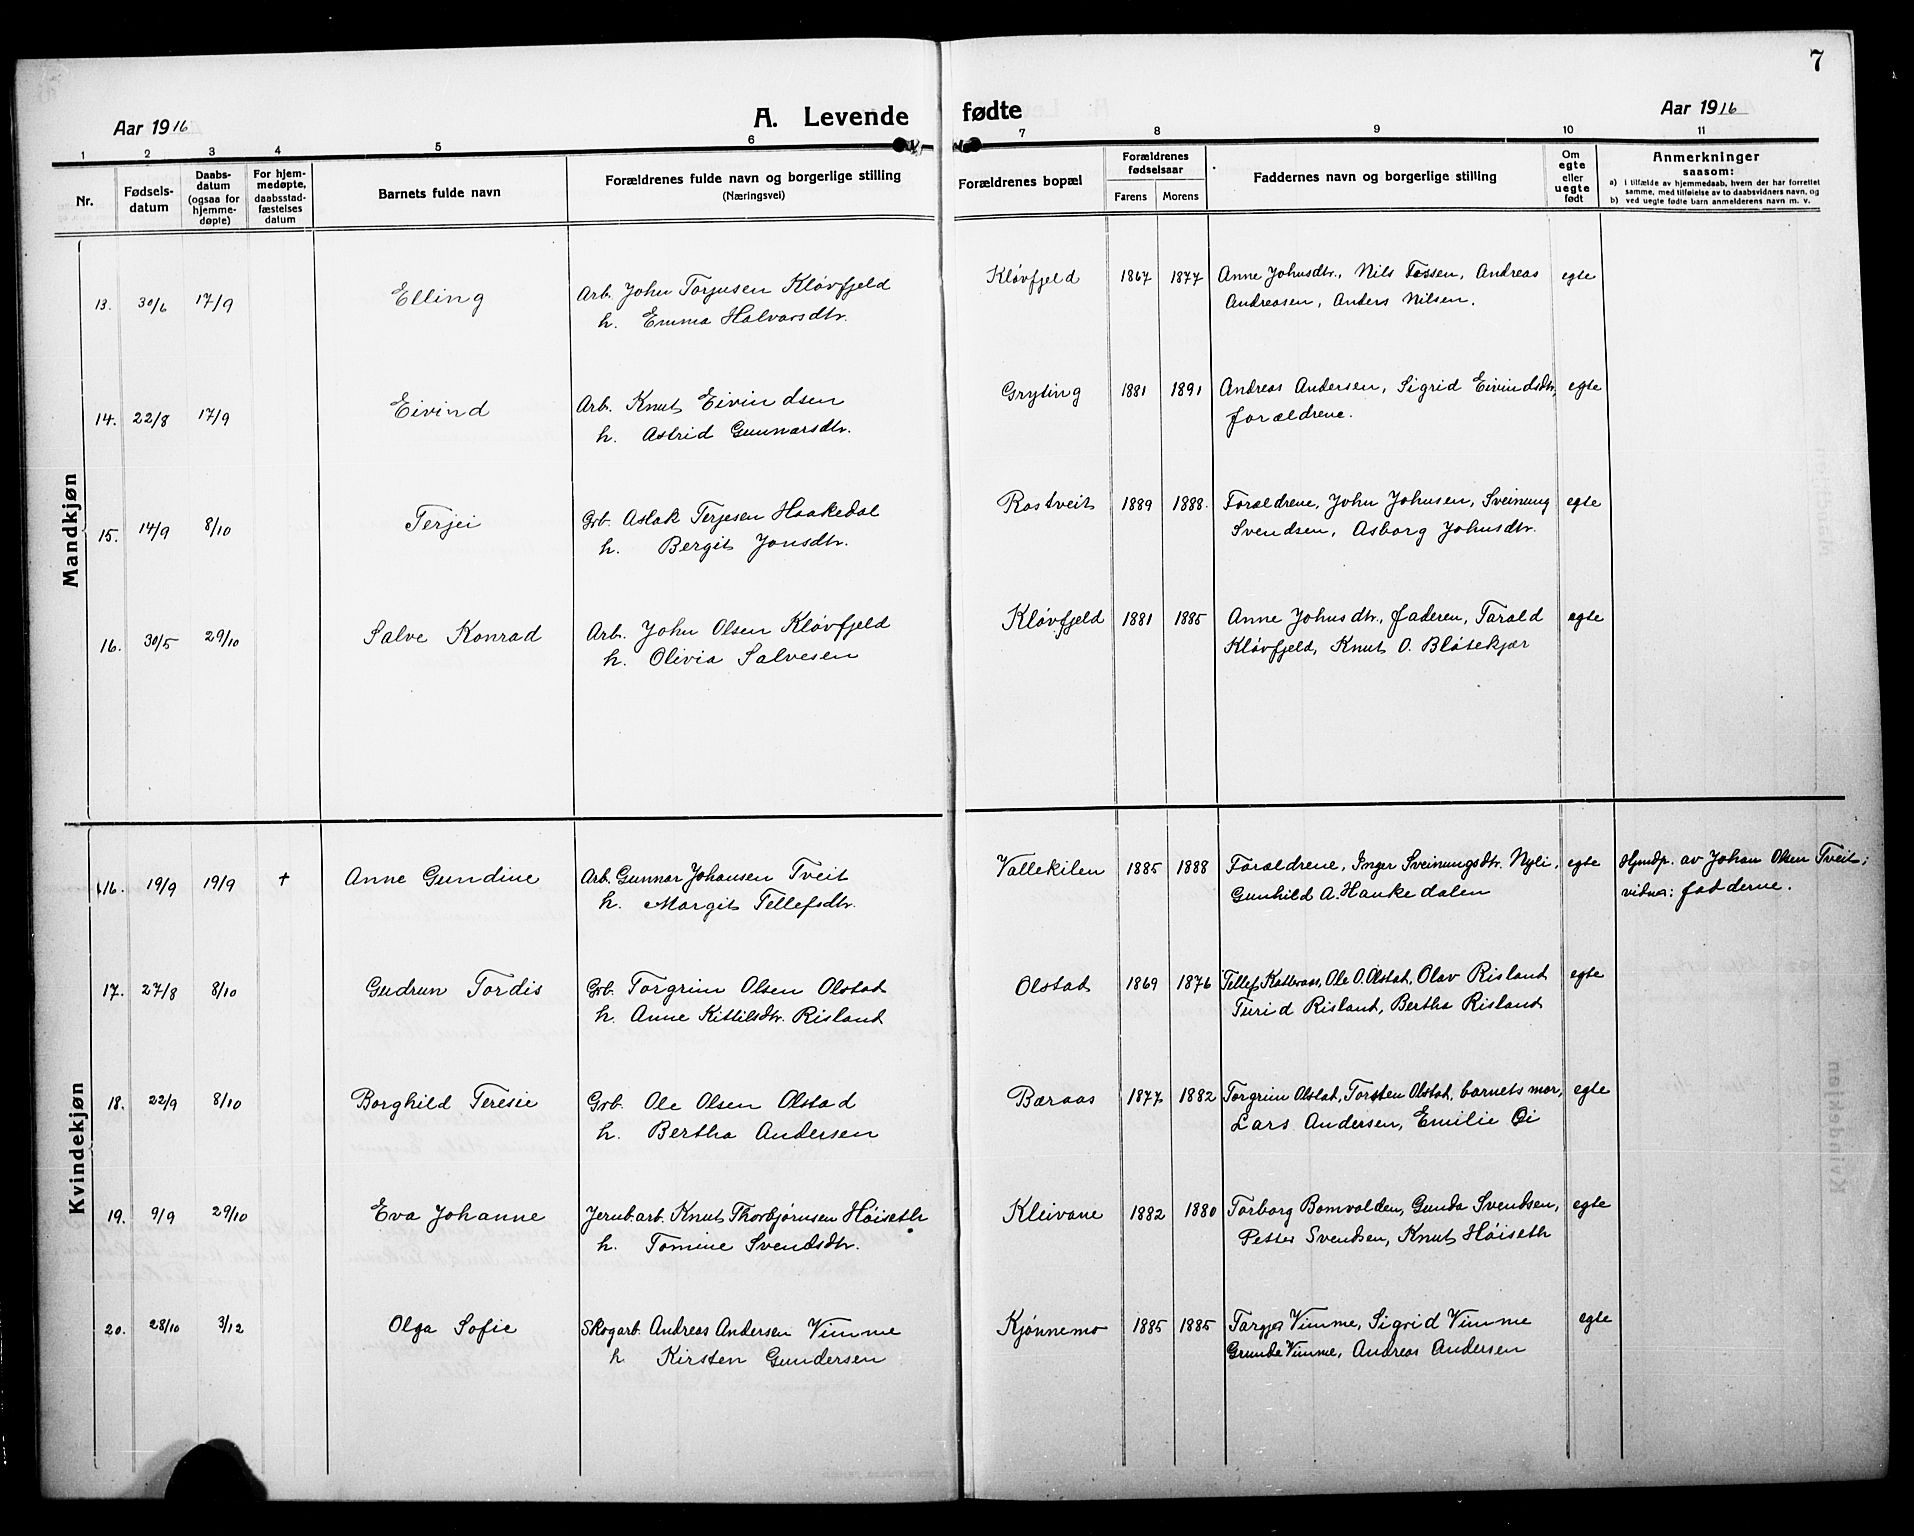 7
Aar 1916 A. Levende fødte Aar 1916
1 2 3 4 5 6 7 8 9 10 11
Nr.
Fødsels-
datum
Daabs-
datum
(ogsaa for
hjemme-
døpte)
For hjem-
medøpte,
daabsstad-
fæstelses
datum
Barnets fulde navn
Forældrenes fulde navn og borgerlige stilling
(Næringsvei)
Forældrenes bopæl
Forældrenes
fødselsaar
Farens Morens
Faddernes navn og borgerlige stilling
Om
egte
eller
uegte
født
Anmerkninger
saasom:
a) i tilfælde av hjemmedaab, hvem der har forrettet
samme, med tilføielse av to daabsvidners navn, og
b) ved uegte fødte barn anmelderens navn m. v.
Mandkjøn
13. 30/6 17/9 Elling Arb. John Torjusen Kløvfjeld Kløvfjeld 1867 1877 Anne Johnsdtr., Nils Tossen, Andreas egte
h. Emma Halvorsdtr. Andreasen, Anders Nilsen.
14. 22/8 17/9 Eivind Arb. Knut Eivindsen Gryting 1881 1891 Andreas Andersen, Sigrid Eivindsdtr, egte
h. Astrid Gunnarsdtr. forældrene.
15. 14/9 8/10 Terjei Grb. Aslak Terjesen Haakedal Rostveit 1889 1888. Forældrene, John Johnsen, Sveinung egte
h. Bergit Jonsdtr. Svendsen, Asborg Johnsdtr.
16. 30/5 29/10 Salve Konrad Arb. John Olsen Kløvfjeld Kløvfjeld 1881 1885 Anne Johnsdtr, faderen, Tarald egte
h. Olivia Salvesen Kløvfjeld, Knut O. Bløtekjær
Kvindekjøn
16. 19/9 19/9 + Anne Gundine Arb. Gunnar Johansen Tveit Vallekilen 1885 1888 Forældrene, Inger Sveinungsdtr. Nyli, egte Hjmdp. av Johan Olsen Tveit;
h. Margit Tellefsdtr. Gunhild A. Haukedalen vidner: fadderne.
17. 27/8 8/10 Gudrun Tordis Grb. Torgrim Olsen Olstad Olstad 1869 1876 Tellef Katteraas, Ole O. Olstad, Olav Risland egte
h. Anne Kittilsdtr. Risland Turid Risland, Bertha Risland
18. 22/9 8/10 Borghild Teresie Grb. Ole Olsen Olstad Bæraas 1877 1882 Torgrim Olstad, Torsten Olstad, barnets mor, egte
h. Bertha Andersen Lars Andersen, Emilie Øi
19. 9/9 29/10 Eva Johanne Jernb.arb. Knut Thorbjørnsen Høiseth Kleivane 1882 1880 Torborg Bomvolden, Gunda Svendsen, egte
h. Tomine Svendsdtr. Petter Svendsen, Knut Høiseth
20. 28/10 3/12 Olga Sofie Skogarb. Andreas Andersen Vimme Kjønnemo 1885 1885 Targjer Vimme, Sigrid Vimme egte
h Kirsten Gundersen Grunda Vimme, Andreas Andersen